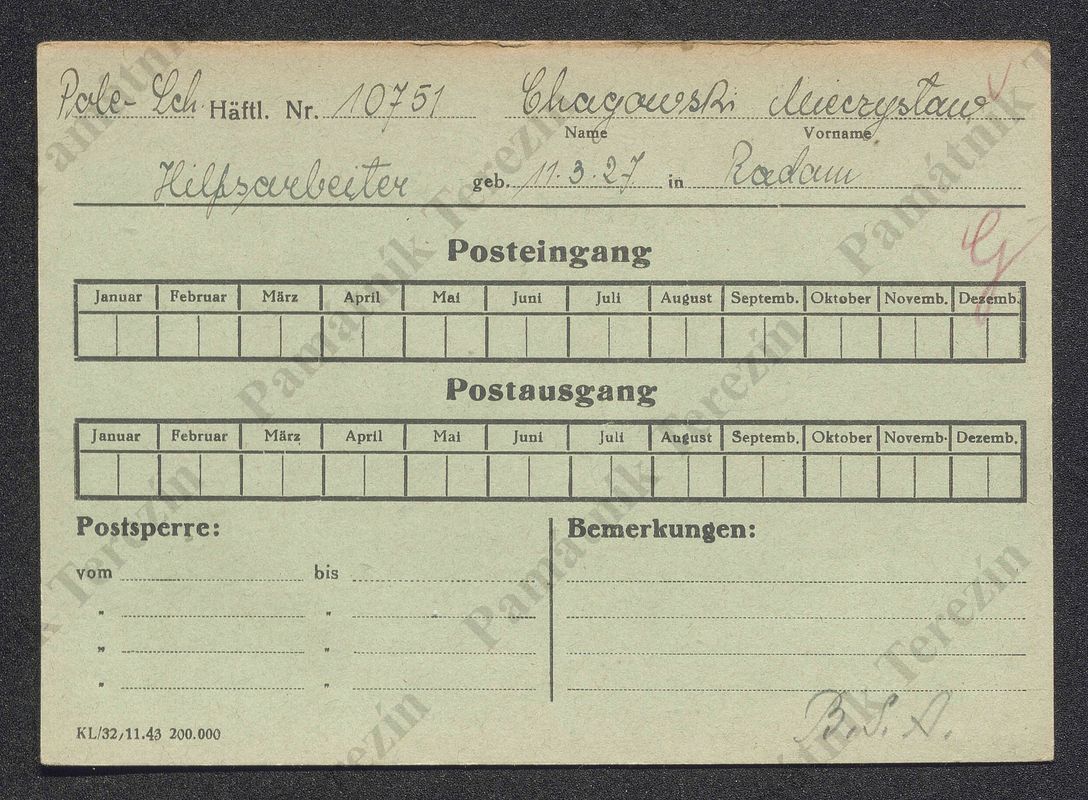 Pole- Sch. Häftl. Nr. 10751 Chagowski Mieczysław
Name Vorname
Hilfsarbeiter geb. 11.3.27 in Radom
Posteingang
Januar Februar März April Mai Juni Juli August Septemb. Oktober Novemb. Dezemb.
Postausgang
Januar Februar März April Mai Juni Juli August Septemb. Oktober Novemb. Dezemb.
Postsperre: Bemerkungen:
vom bis
" "
" "
" "
B.S.A.
KL/32/11.43 200.000
Památník Terezín